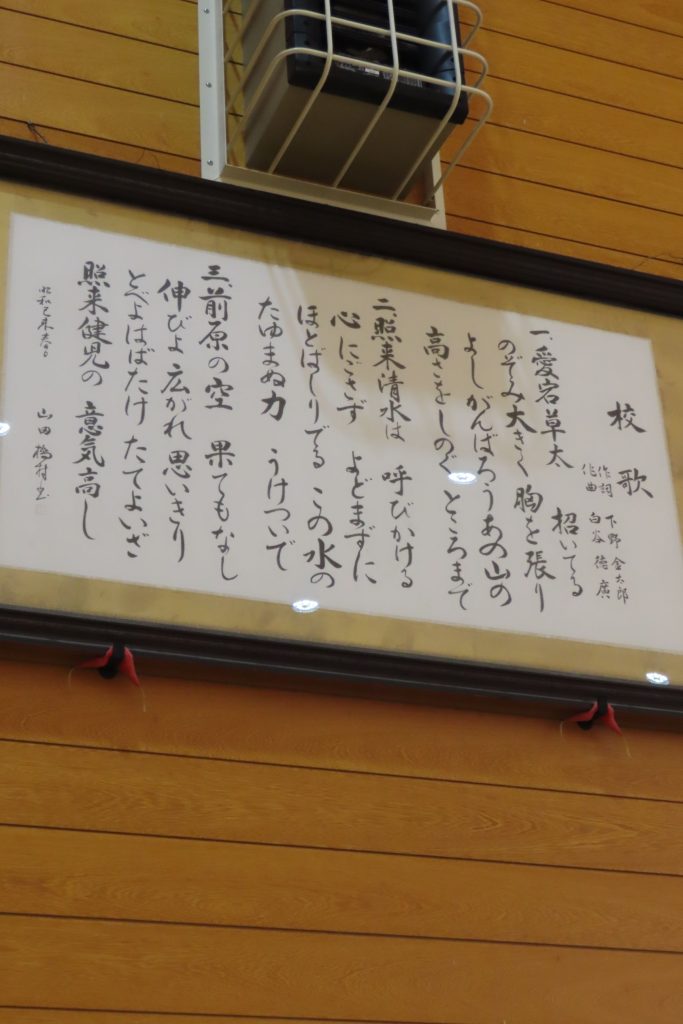 校歌
作詞 下野金太郎
作曲 白谷徳廣
一、愛宕草太 招いてる
のぞみ大きく 胸を張り
よしがんばろうあの山の
高さをしのぐ ところまで
二、照来清水は 呼びかける
心にごさず よどまずに
ほとばしりでる この水の
たゆまぬ力 うけついで
三、前原の空 果てもなし
伸びよ広がれ 思いきり
とべよはばたけ たてよいざ
照来健児の 意気高し
昭和己未春日
山田